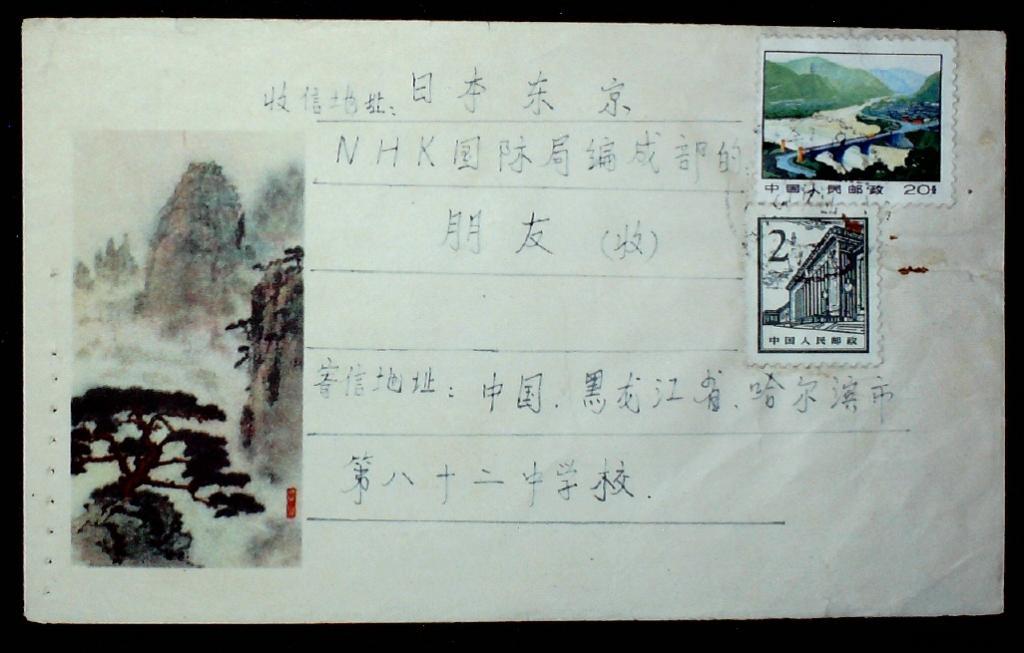 收信地址：日本东京
NHK国际局编成部的
朋友（收）
寄信地址：中国.黑龙江省.哈尔滨市
第八十二中学校.
中国人民邮政 20分
2分
中国人民邮政